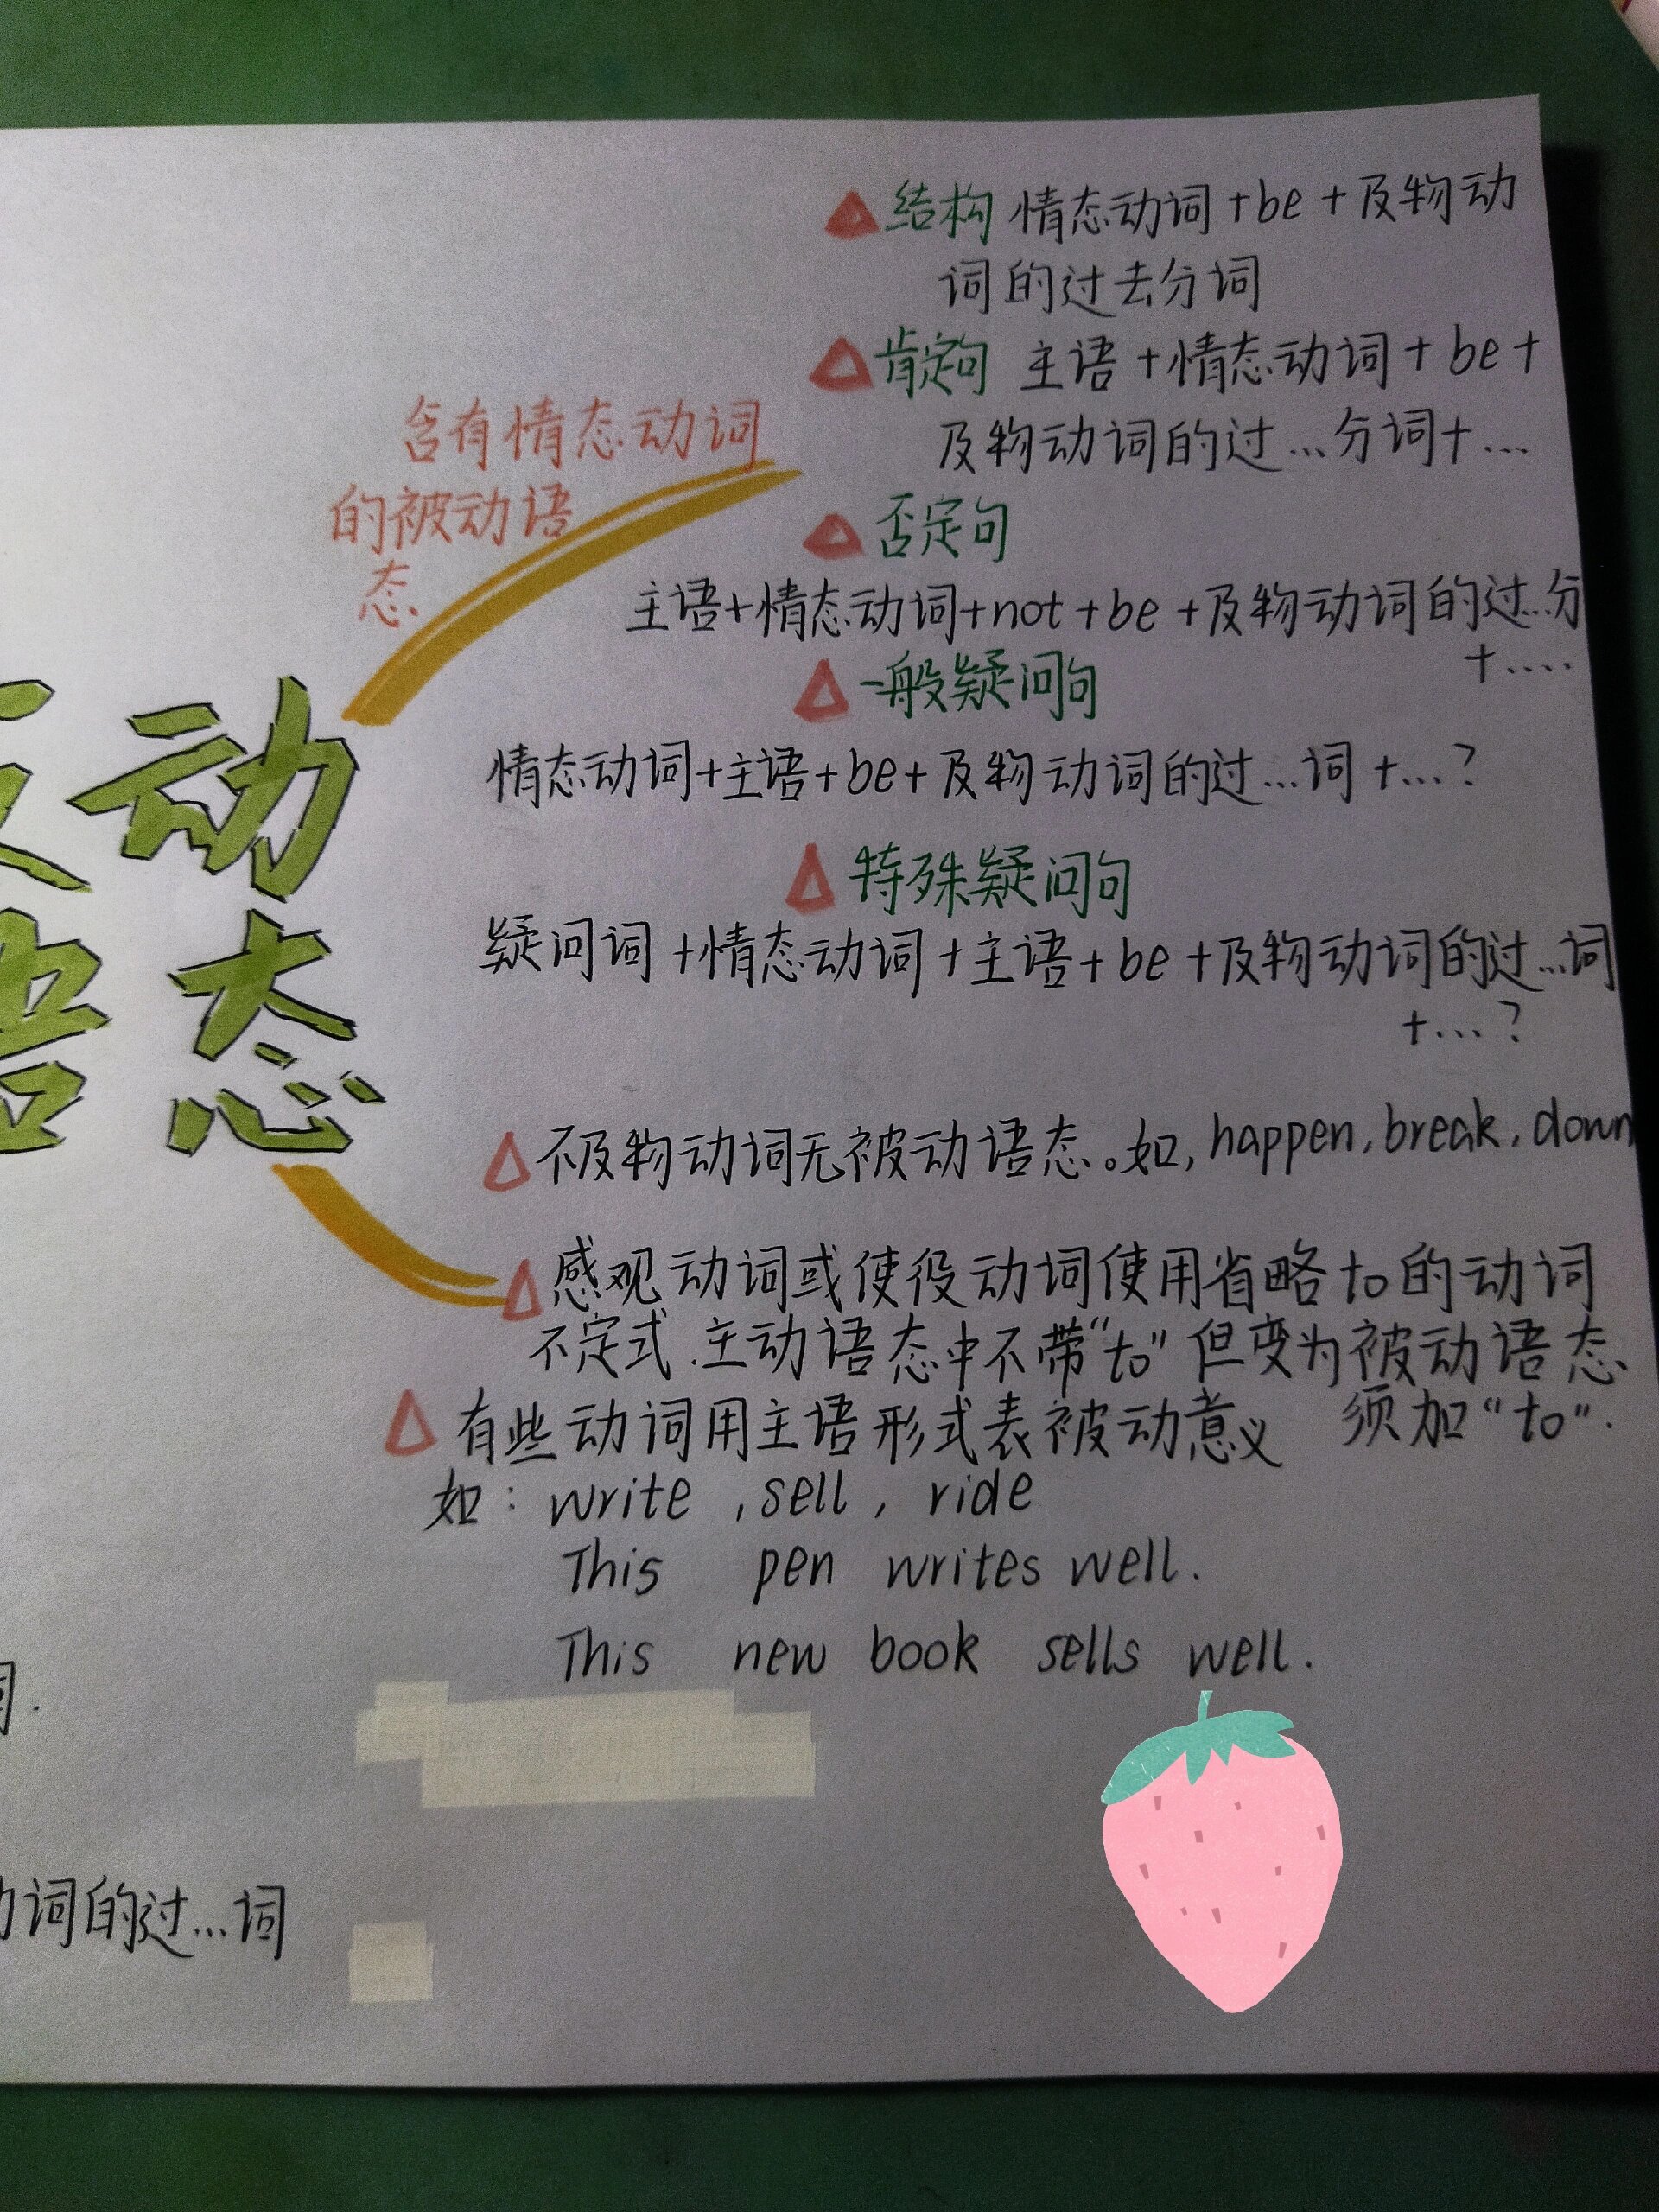 △结构 情态动词+be+及物动
词的过去分词
△肯定句 主语+情态动词+be+
及物动词的过...分词+...
含有情态动词
的被动语
态
△否定句
主语+情态动词+not+be+及物动词的过...分
+....
△一般疑问句
情态动词+主语+be+及物动词的过...词+...?
△特殊疑问句
疑问词+情态动词+主语+be+及物动词的过...词
+...?
动
态
△不及物动词无被动语态。如, happen, break, down
△感观动词或使役动词使用省略to的动词
不定式.主动语态中不带“to”但变为被动语态
须加“to”.
△有些动词用主语形式表被动意义
如: write, sell, ride
This pen writes well.
This new book sells well.
词的过...词